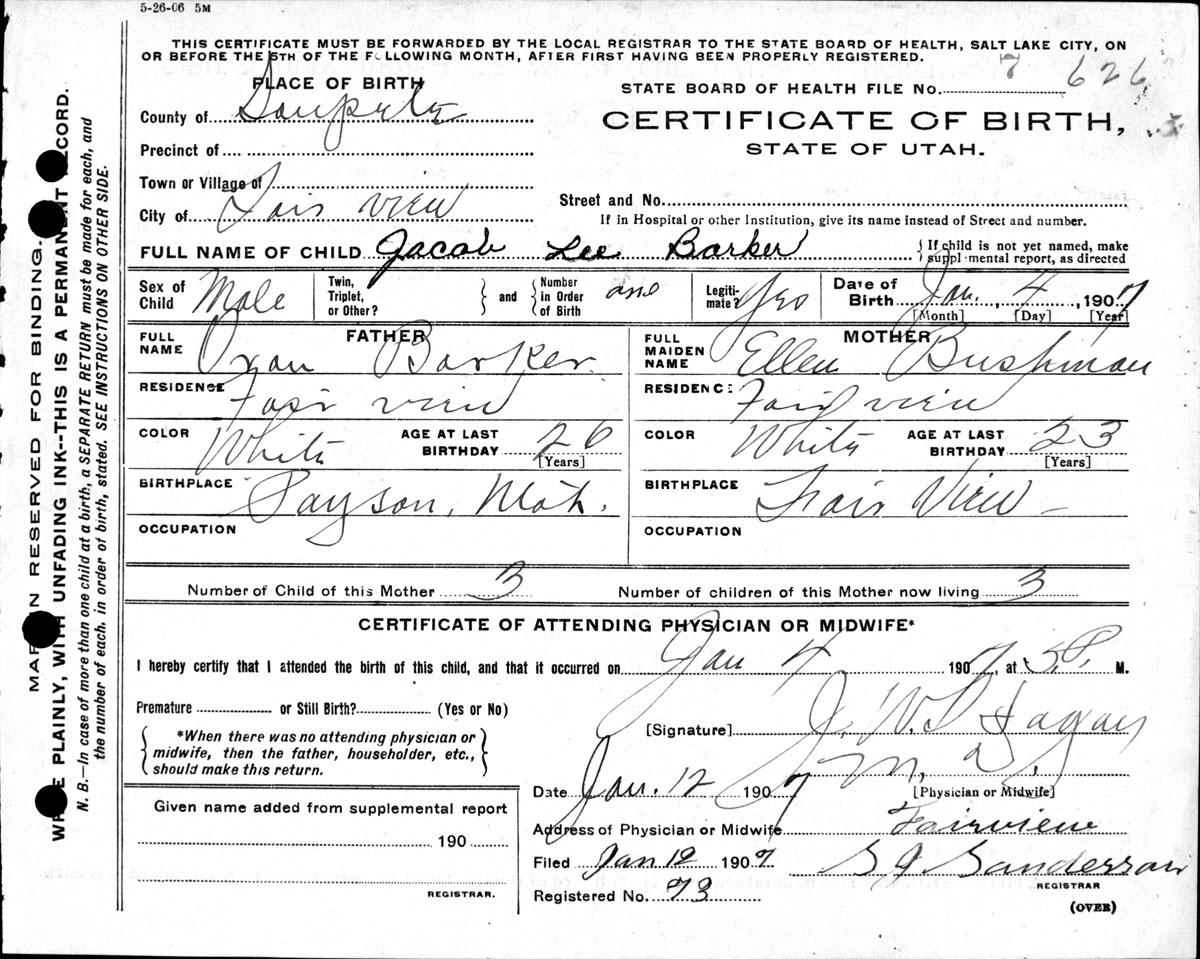 5-26-06 5M
THIS CERTIFICATE MUST BE FORWARDED BY THE LOCAL REGISTRAR TO THE STATE BOARD OF HEALTH, SALT LAKE CITY, ON
OR BEFORE THE 5TH OF THE FOLLOWING MONTH, AFTER FIRST HAVING BEEN PROPERLY REGISTERED.
PLACE OF BIRTH
STATE BOARD OF HEALTH FILE NO. 7 626
County of Sanpete
CERTIFICATE OF BIRTH,
STATE OF UTAH.
Precinct of
Town or Village of
City of Fair view
Street and No.
If in Hospital or other Institution, give its name instead of Street and number.
FULL NAME OF CHILD Jacob Lee Barker
{ If child is not yet named, make
suppl mental report, as directed
Sex of Child Male
Twin, Triplet, or Other?
and
Number in Order of Birth one
Legiti- mate? Yes
Date of Birth Jan. 4, 1907
[Month] [Day] [Year]
FATHER
FULL NAME Oran Barker
MOTHER
FULL MAIDEN NAME Ellen Bushman
RESIDENCE Fair view
RESIDENCE Fair view
COLOR White
AGE AT LAST BIRTHDAY 26
[Years]
COLOR White
AGE AT LAST BIRTHDAY 23
[Years]
BIRTHPLACE Payson,
BIRTHPLACE Fair View -
OCCUPATION
OCCUPATION
Number of Child of this Mother 3
Number of children of this Mother now living 3
CERTIFICATE OF ATTENDING PHYSICIAN OR MIDWIFE*
I hereby certify that I attended the birth of this child, and that it occurred on Jan 4 1907, at P. M.
Premature or Still Birth? (Yes or No)
*When there was no attending physician or
midwife, then the father, householder, etc.,
should make this return.
[Signature] J. W.
M. D.
[Physician or Midwife]
Date Jan. 12 1907
Address of Physician or Midwife Fairview
Filed Jan 12 1907
Sanderson
REGISTRAR
Registered No. 73
(OVER)
Given name added from supplemental report
190
REGISTRAR.
MARGIN RESERVED FOR BINDING.
WRITE PLAINLY, WITH UNFADING INK--THIS IS A PERMANENT RECORD.
N. B.—In case of more than one child at a birth, a SEPARATE RETURN must be made for each, and
the number of each, in order of birth, stated. SEE INSTRUCTIONS ON OTHER SIDE.